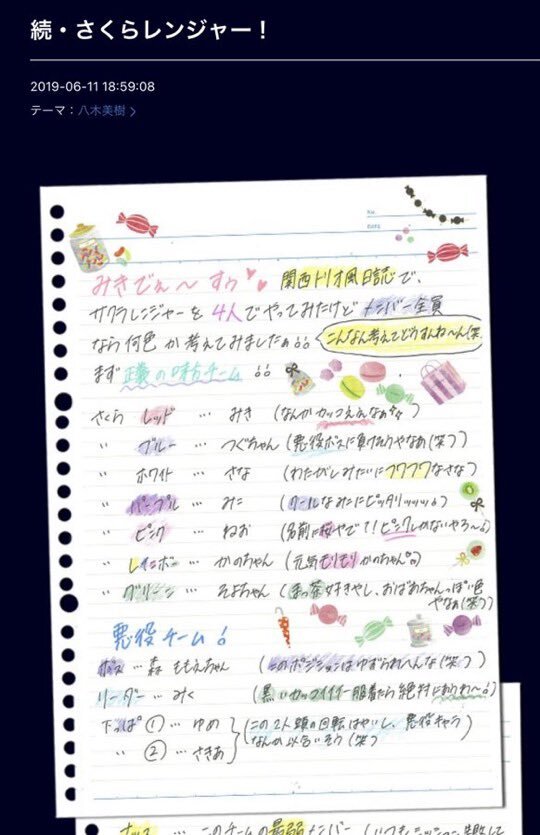 続・さくらレンジャー！
2019-06-11 18:59:08
テーマ：八木美樹
No.
DATE
みきでぇ〜すぅ 関西トリオ風日誌で、
サクラレンジャーを4人でやってみたけど メンバー全員
なら何色か考えてみましたぁ
こんなん考えてどうすんね〜ん(笑
まず 正義の味方チーム
さくら レッド … みき (なんかカッコええなぁ
〃 ブルー … つぐちゃん (悪役ボスに負けそうやなぁ(笑))
〃 ホワイト … さな (わたがしみたいにフワフワなさな)
〃 パープル … みこ (クールなみこにピッタリッッッ)
〃 ピンク … ねお (名前に桜やで?!ピンクしかないやろ〜
〃 レインボー … かのちゃん (元気もりもりかのちゃん
〃 グリーン … そよちゃん (まっ茶好きやし、おばあちゃんっぽい色
やなぁ(笑))
悪役チーム
ボス … 森 ももえちゃん (このポジションはゆずられへんな(笑))
リーダー … みく (黒いカッコイイ服着たら絶対にあうわ〜)
下っぱ ① … ゆめ
〃 ② … ききあ
(この2人頭の回転はやいし、悪役キャラ
なんか似合いそう(笑))
… このチームの最弱メンバー